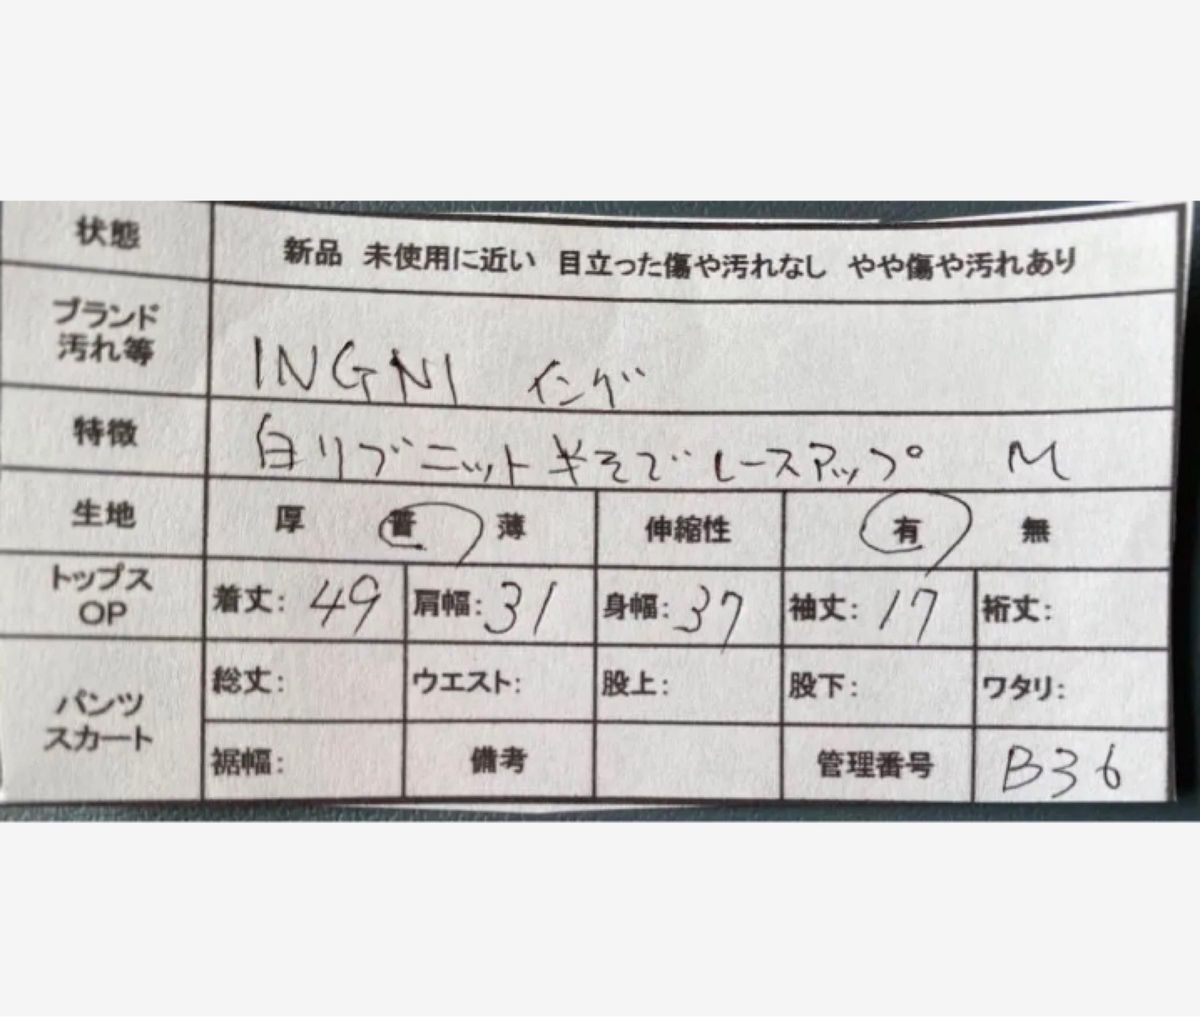 状態 新品 未使用に近い 目立った傷や汚れなし やや傷や汚れあり
ブランド
汚れ等 INGNI イング
特徴 白リブニット半そで レースアップ M
生地 厚 普 薄 伸縮性 有 無
トップス
OP 着丈: 49 肩幅: 31 身幅: 37 袖丈: 17 裄丈:
パンツ
スカート 総丈: ウエスト: 股上: 股下: ワタリ:
裾幅: 備考 管理番号 B36